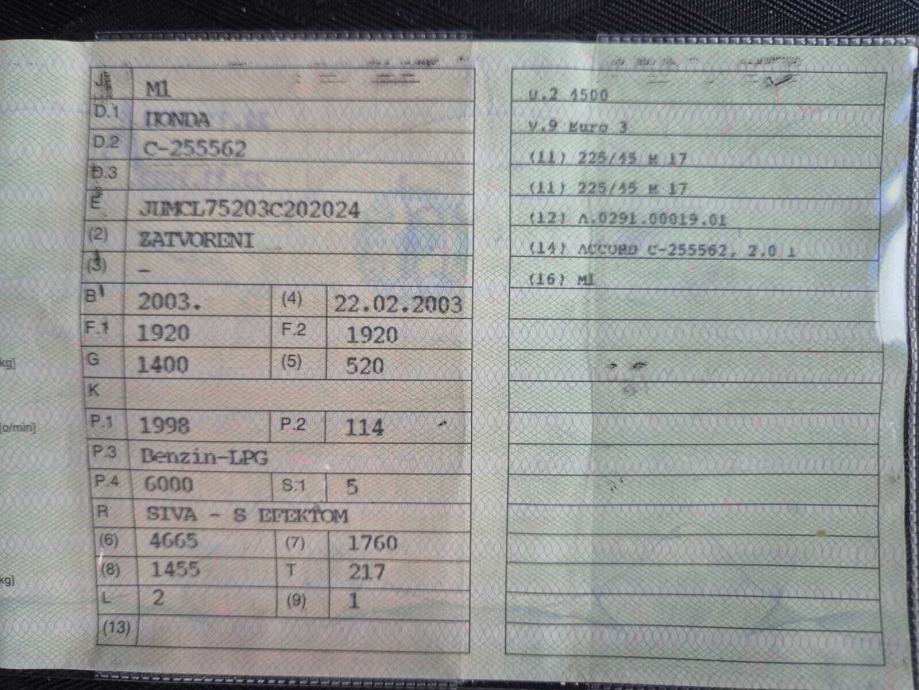 J M1
D.1 HONDA
D.2 C-255562
D.3
E JHMCL75203C202024
(2) ZATVORENI
(3) –
B 2003. (4) 22.02.2003
F.1 1920 F.2 1920
G 1400 (5) 520
K
P.1 1998 P.2 114
P.3 Benzin-LPG
P.4 6000 S.1 5
R SIVA - S EFEKTOM
(6) 4665 (7) 1760
(8) 1455 T 217
L 2 (9) 1
(13)
kg]
[o/min]
kg]
u.2 1500
v.9 Euro 3
(11) 225/45 R 17
(11) 225/45 R 17
(12) A.0291.00019.01
(14) ACCORD C-255562, 2.0 i
(16) M1